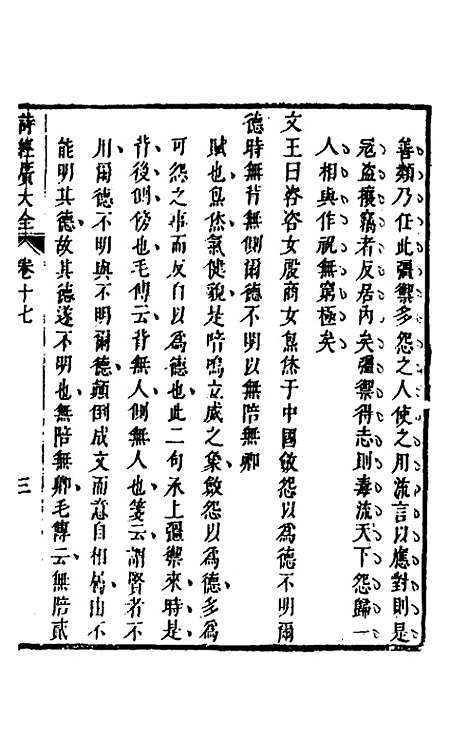 善類乃任此彊禦多怨之人使之用流言以應對則是
冦盜攘竊者反居內矣彊禦得志則毒流天下怨歸一
人相與作祝無窮極矣
文王曰咨咨女殷商女炰烋于中國斂怨以爲德不明爾
德時無背無側爾德不明以無陪無卿
賦也炰烋氣健貌是喑嗚立威之象斂怨以爲德多爲
可怨之事而反自以爲德也此二句承上彊禦來時是
背後側傍也毛傳云背無人側無人也箋云謂賢者不
用爾德不明與不明爾德顛倒成文而意自相備由不
能明其德故其德遂不明也無陪無卿毛傳云無陪貳
詩經廣大全 卷十七 三